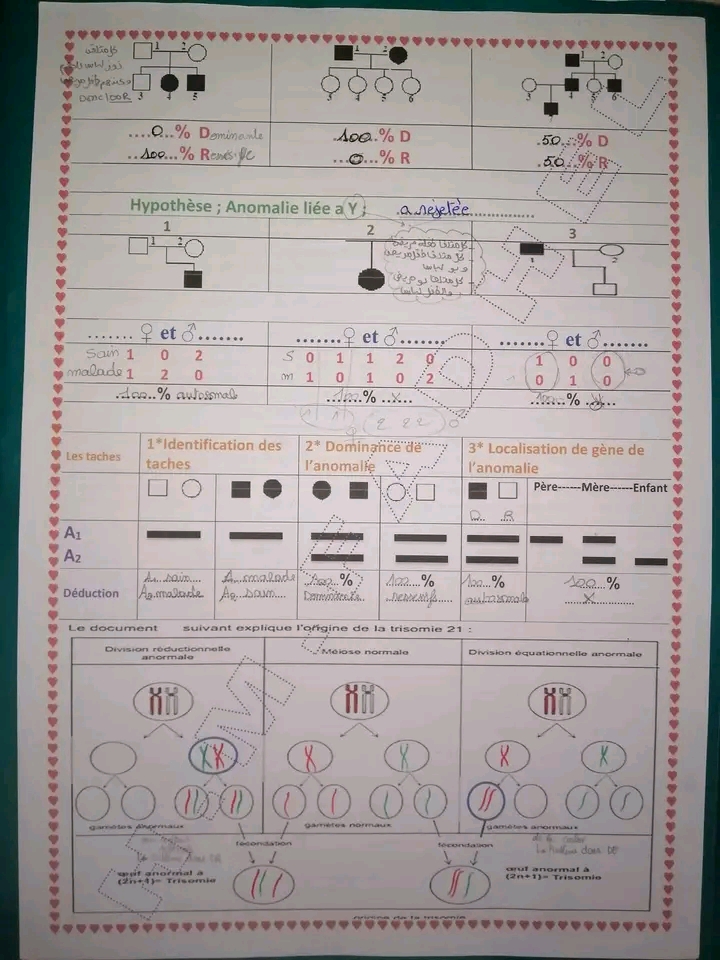 1 2
3 4 5
1 2
3 4 5 6
1 2
3 4 5 6
...0...% Dominante
..100...% Recessif
100...% D
...0...% R
.50...% D
.50...% R
Hypothèse ; Anomalie liée a Y : a rejetée
1 2 3
1 2
1 2
....... ♀ et ♂ .......
....... ♀ et ♂ .......
....... ♀ et ♂ .......
Sain 1 0 2
malade 1 2 0
S 0 1 1 2 0
m 1 0 1 0 2
1 0 0
0 1 0
.100..% autosomal
100...% ..X..
100...% X
Les taches
1*Identification des taches
2* Dominance de l'anomalie
3* Localisation de gène de l'anomalie
D R
Père------Mère-----Enfant
A1
A2
Déduction
A1 sain
A2 malade
A1 malade
A2 sain
100 %
Dominante
100 %
recessif
100 %
autosomale
100 %
X
Le document suivant explique l'origine de la trisomie 21 :
Division réductionnelle anormale
Méiose normale
Division équationnelle anormale
gamètes anormaux
gamètes normaux
gamètes anormaux
fécondation
fécondation
œuf anormal à (2n+1)= Trisomie
œuf anormal à (2n+1)= Trisomie
origine de la trisomie